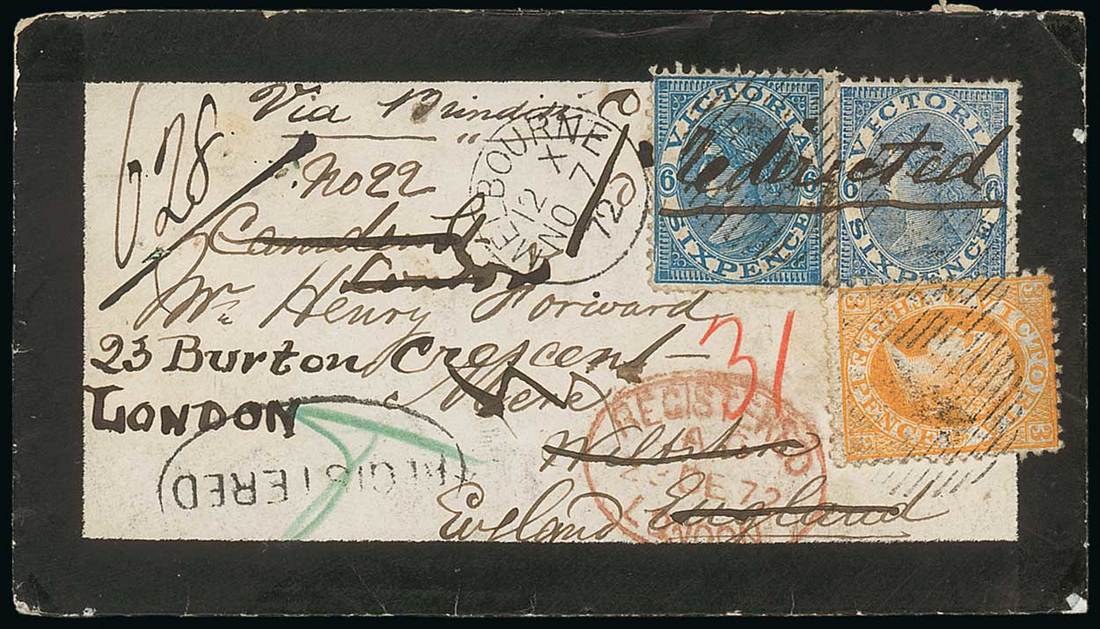 Via Brindisi
628
No 22
Camden
London
Mr. Henry Forward
23 Burton Crescent
Mere
LONDON
Wiltshire
England England
Redirected
MELBOURNE
X
12
NO 7
72
VICTORIA
6 6
SIXPENCE
VICTORIA
6 6
SIXPENCE
VICTORIA
THREE PENCE
3 3
31
REGISTERED
DE 72
LONDON
REGISTERED